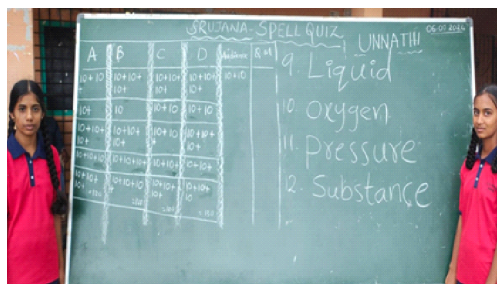 SRUJANA - SPELL QUIZ
UNNATHI
A B C D
10+10 10+10+ 10+10+ 10+10+ 10+10
+ 10+ 10+ 10+
10+ 10 10+10 10+10
10+10+ 10+10+ 10+10 10+10+
10+ 10+ + 10+
10+10+10 10+10+10+ 10+10+ 10+10+
10+10+ 10+10+10 10+10+ 10+10+
9. Liquid
10. oxygen
11. pressure
12. Substance